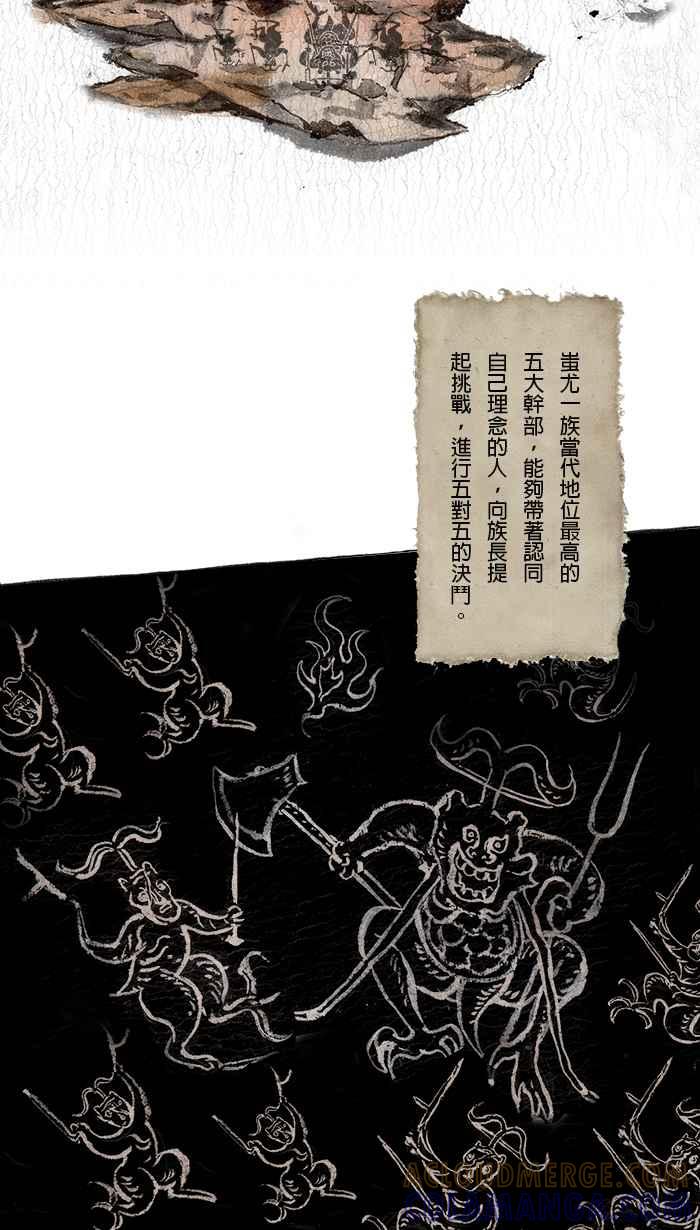 蚩尤一族當代地位最高的
五大幹部，能夠帶著認同
自己理念的人，向族長提
起挑戰，進行五對五的決鬥。
ACLOUDMERGE.COM
COLAMANGA.COM